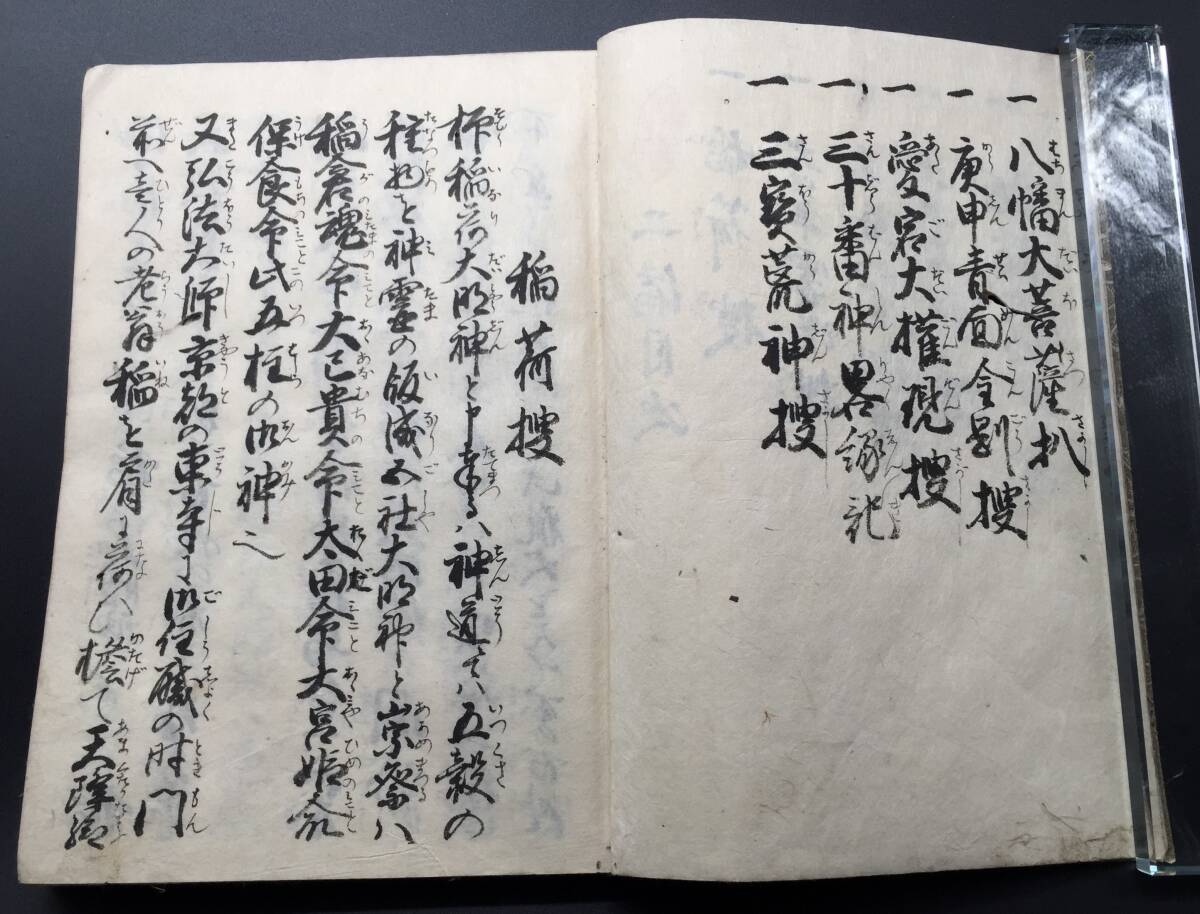 一 八幡大菩薩扒
一 庚申青面金剛搜
一 愛宕大権現搜
一 三十番神畧縁記
一 三寳荒神搜
稲荷搜
抑稲荷大明神と申奉るハ神道にてハ五穀の
種物を神霊の飯成五社大明神と崇祭ハ
稲倉魂命大已貴命太田命大宮姫命
保食命此五柱の御神也
又弘法大師京都の東寺に御住職の時門
前へ壱人の老翁稲を肩に荷ひ檐て天降給